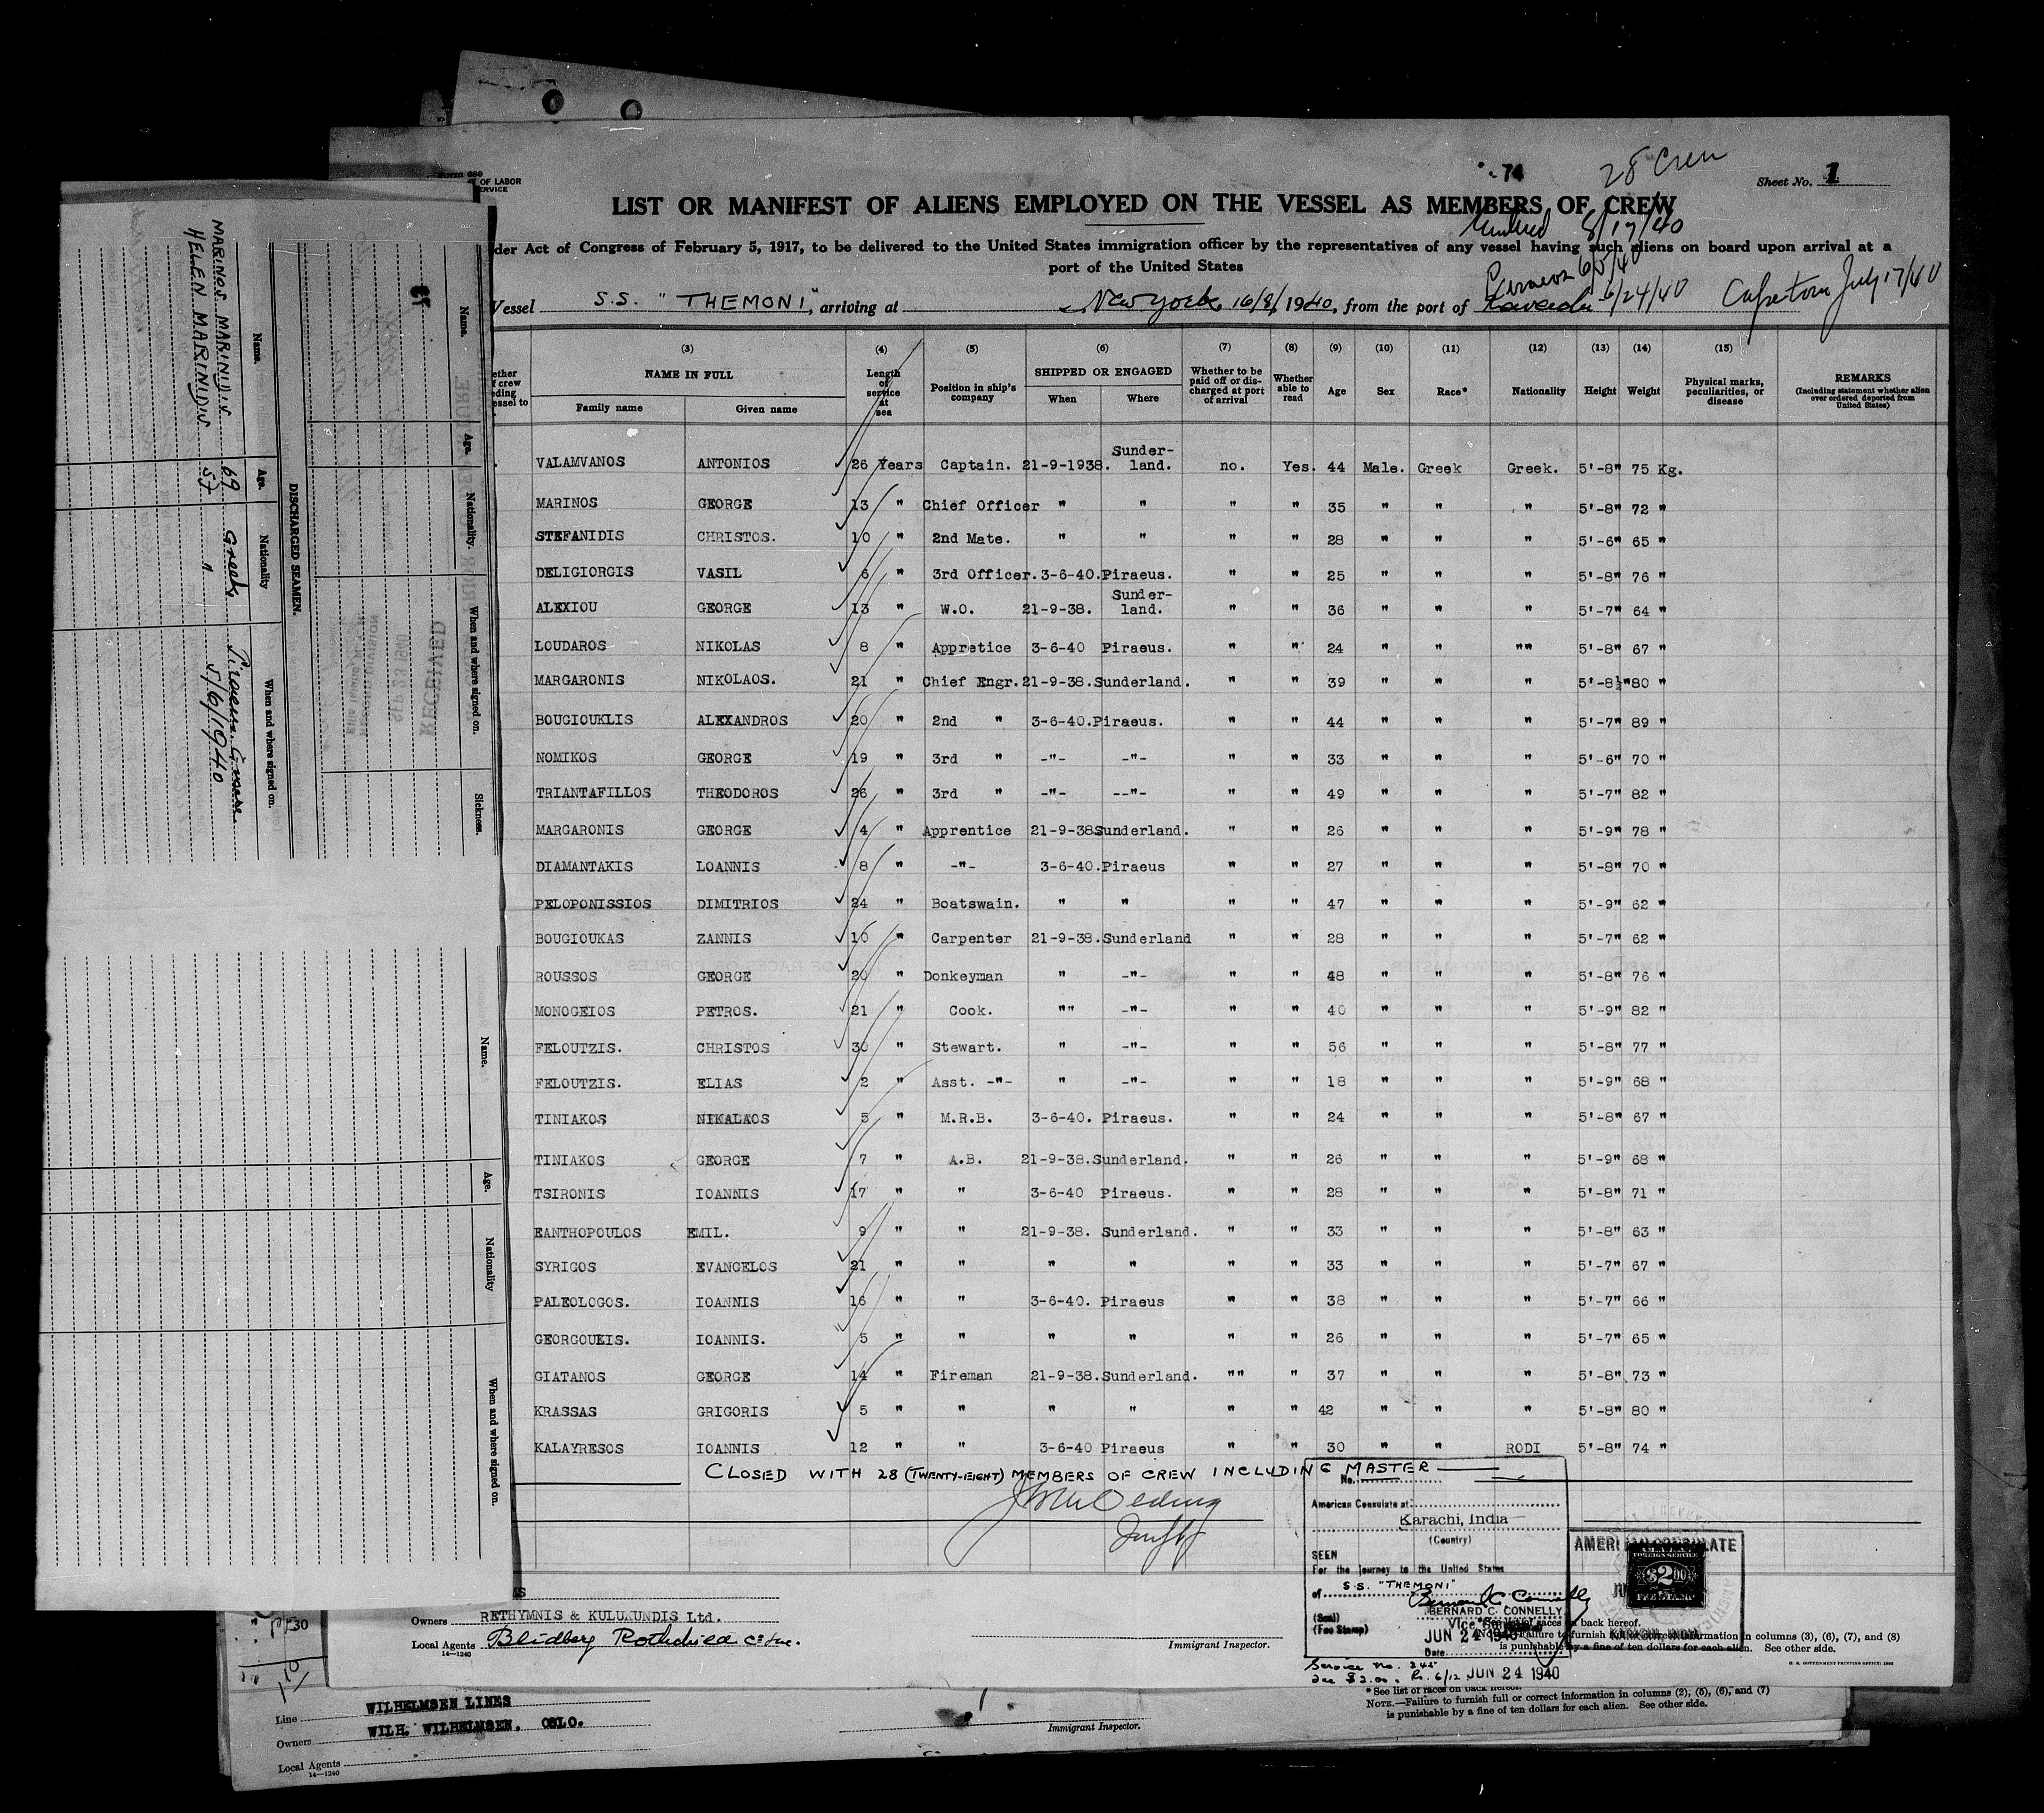 74
28 Crew
Sheet No. 1
Form 680
OF LABOR
SERVICE
LIST OR MANIFEST OF ALIENS EMPLOYED ON THE VESSEL AS MEMBERS OF CREW
8/17/40
der Act of Congress of February 5, 1917, to be delivered to the United States immigration officer by the representatives of any vessel having such aliens on board upon arrival at a
port of the United States
6/5/40
Vessel S.S. "THEMONI", arriving at New York 16/8/1940, from the port of 6/24/40 Capetown July 17/40
(3) (4) (5) (6) (7) (8) (9) (10) (11) (12) (13) (14) (15)
NAME IN FULL Family name Given name Length of service at sea Position in ship's company SHIPPED OR ENGAGED When Where Whether to be paid off or discharged at port of arrival Whether able to read Age Sex Race* Nationality Height Weight Physical marks, peculiarities, or disease REMARKS (Including statement whether alien ever ordered deported from United States)
VALAMVANOS ANTONIOS 26 Years Captain. 21-9-1938. Sunder-land. no. Yes. 44 Male. Greek Greek. 5'-8" 75 Kg.
MARINOS GEORGE 13 " Chief Officer " " " " 35 " " " 5'-8" 72 "
STEFANIDIS CHRISTOS. 10 " 2nd Mate. " " " " 28 " " " 5'-6" 65 "
DELIGIORGIS VASIL 6 " 3rd Officer. 3-6-40. Piraeus. " " 25 " " " 5'-8" 76 "
ALEXIOU GEORGE 13 " W.O. 21-9-38. Sunder-land. " " 36 " " " 5'-7" 64 "
LOUDAROS NIKOLAS 8 " Appretice 3-6-40 Piraeus. " " 24 " " "" 5'-8" 67 "
MARGARONIS NIKOLAOS. 21 " Chief Engr. 21-9-38. Sunderland. " " 39 " " " 5'-8½" 80 "
BOUGIOUKLIS ALEXANDROS 20 " 2nd " 3-6-40. Piraeus. " " 44 " " " 5'-7" 89 "
NOMIKOS GEORGE 19 " 3rd " -"- -"- " " 33 " " " 5'-6" 70 "
TRIANTAFILLOS THEODOROS 26 " 3rd " -"- --"- " " 49 " " " 5'-7" 82 "
MARGARONIS GEORGE 4 " Apprentice 21-9-38 Sunderland. " " 26 " " " 5'-9" 78 "
DIAMANTAKIS LOANNIS 8 " -"- 3-6-40. Piraeus " " 27 " " " 5'-8" 70 "
PELOPONISSIOS DIMITRIOS 24 " Boatswain. " " " " 47 " " " 5'-9" 62 "
BOUGIOUKAS ZANNIS 10 " Carpenter 21-9-38. Sunderland " " 28 " " " 5'-7" 62 "
ROUSSOS GEORGE 20 " Donkeyman " -"- " " 48 " " " 5'-8" 76 "
MONOGEIOS PETROS. 21 " Cook. "" -"- " " 40 " " " 5'-9" 82 "
FELOUTZIS. CHRISTOS 30 " Stewart. " -"- " " 56 " " " 5'-8" 77 "
FELOUTZIS. ELIAS 2 " Asst. -"- " -"- " " 18 " " " 5'-9" 68 "
TINIAKOS NIKALAOS 5 " M.R.B. 3-6-40. Piraeus. " " 24 " " " 5'-8" 67 "
TINIAKOS GEORGE 7 " A.B. 21-9-38. Sunderland. " " 26 " " " 5'-9" 68 "
TSIRONIS IOANNIS 17 " " 3-6-40 Piraeus. " " 28 " " " 5'-8" 71 "
EANTHOPOULOS EMIL. 9 " " 21-9-38. Sunderland. " " 33 " " " 5'-8" 63 "
SYRIGOS EVANGELOS 21 " " " " " " 33 " " " 5'-7" 67 "
PALEOLOGOS. IOANNIS 16 " " 3-6-40. Piraeus " " 38 " " " 5'-7" 66 "
GEORGOUKIS. IOANNIS. 5 " " " " " " 26 " " " 5'-7" 65 "
GIATANOS GEORGE 14 " Fireman 21-9-38. Sunderland. "" " 37 " " " 5'-8" 73 "
KRASSAS GRIGORIS 5 " " " " " " 42 " " " 5'-8" 80 "
KALAYRESOS IOANNIS 12 " " 3-6-40 Piraeus " " 30 " " RODI 5'-8" 74 "
CLOSED WITH 28 (TWENTY-EIGHT) MEMBERS OF CREW INCLUDING MASTER
No.
American Consulate at
Karachi, India
(Country)
SEEN
For the journey to the United States
of S.S. "THEMONI"
BERNARD C. CONNELLY
(Seal)
(Fee Stamp)
Vice
JUN 24 1940
Date
Service No. 245
Fee $2.00. Rs. 6/12 JUN 24 1940
AMERICAN CONSULATE
FOREIGN SERVICE
$2.00
Owners RETHYMNIS & KULUKUNDIS Ltd.
Local Agents Blidberg Rothchild Co Inc.
14—1240
Immigrant Inspector.
races on back hereof.
Failure to furnish full or correct information in columns (3), (6), (7), and (8)
is punishable by a fine of ten dollars for each alien. See other side.
Line WILHELMSEN LINES
Owners WILH. WILHELMSEN. OSLO.
Local Agents
14—1240
Immigrant Inspector.
* See list of races on back hereof.
NOTE.—Failure to furnish full or correct information in columns (2), (5), (6), and (7)
is punishable by a fine of ten dollars for each alien. See other side.
DISCHARGED SEAMEN.
Name. Age. Nationality When and where signed on.
MARINOS MARINIDIS 69 Greek Piraeus. Greece
HELEN MARINIDIS 57 " 5/6/1940
Name. Age. Nationality. When and where signed on. Sickness.
RECEIVED
SEP 23 1940
Name. Age. Nationality When and where signed on.